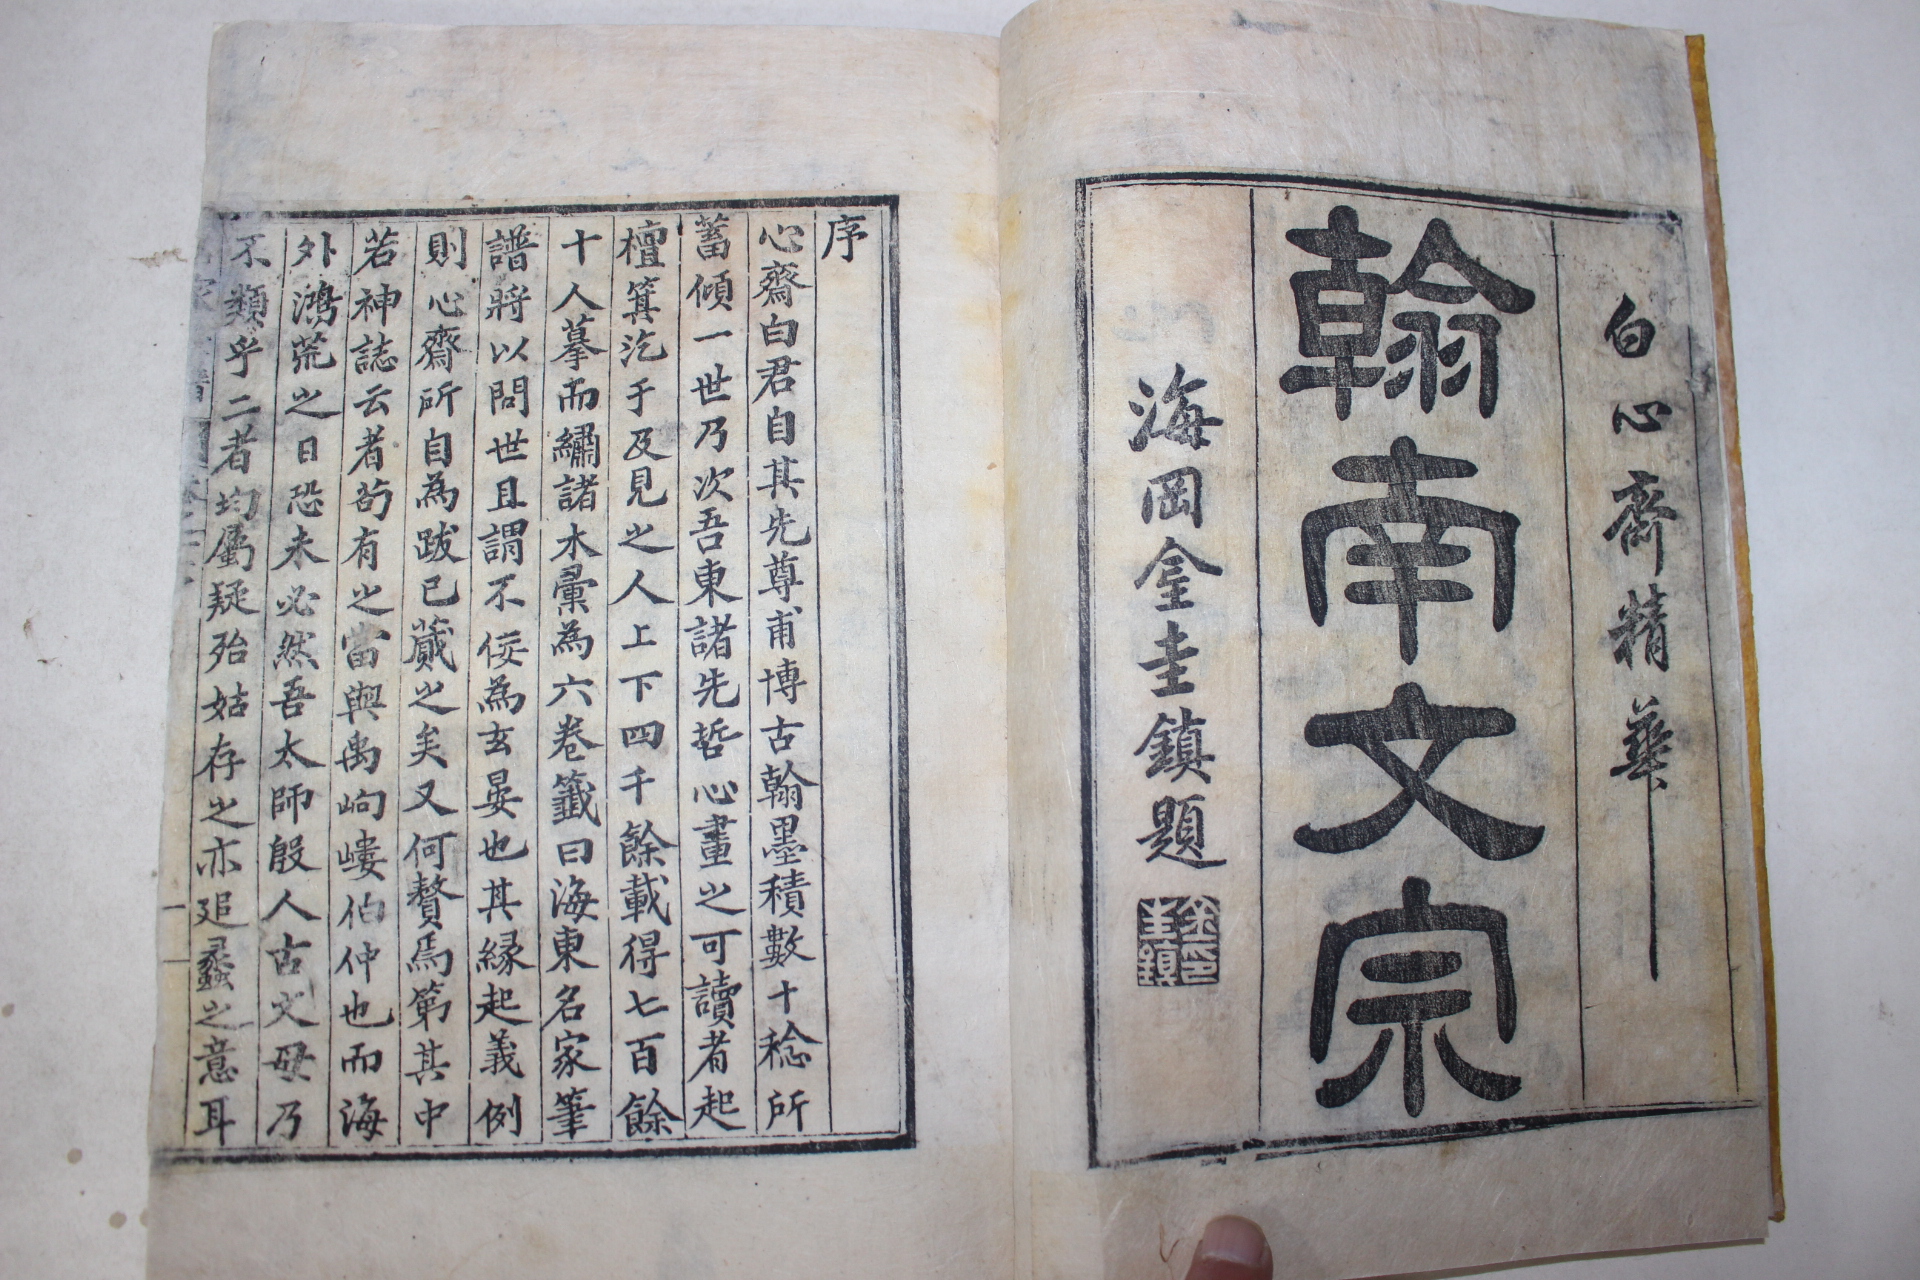 白心齋精華
翰南文宗
海岡金圭鎮題
金圭鎮印
序
心齋白君自其先尊甫博古翰墨積數十稔所
蓄傾一世乃次吾東諸先哲心畫之可讀者起
檀箕汔于及見之人上下四千餘載得七百餘
十人摹而繡諸木彙為六卷籤曰海東名家筆
譜將以問世且謂不佞為玄晏也其緣起義例
則心齋所自為跋已蕆之矣又何贅焉第其中
若神誌云者苟有之當與禹岣嶁伯仲也而海
外鴻荒之日恐未必然吾太師殷人古文毋乃
不類乎二者均屬疑殆姑存之亦追蠡之意耳